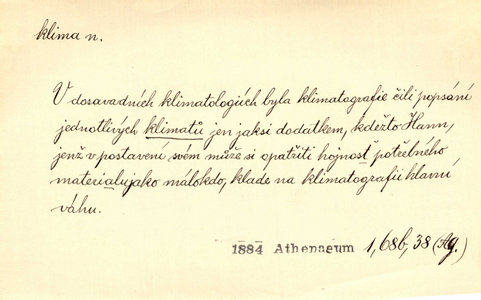 klima n.
V dosavadních klimatologiích byla klimatografie čili popsání
jednotlivých klimatů jen jaksi dodatkem, kdežto Hann,
jenž v postavení svém může si opatřiti hojnost potřebného
materialu jako málokdo, klade na klimatografii hlavní
váhu.
1884 Athenaeum 1,68b,38 (Ag.)